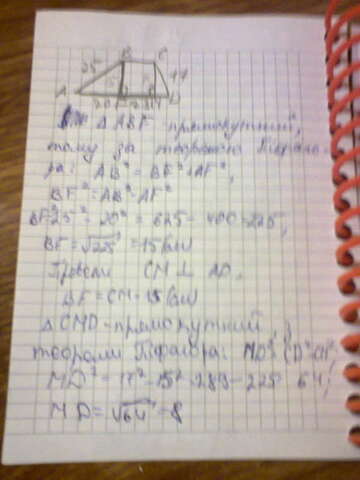 B C
25 17
A D
Δ ABF прямокутний,
тому за теоремою Піфаго-
ра: AB² = BF² + AF²,
BF² = AB² - AF²
BF² = 25² - 20² = 625 - 400 = 225,
BF = √225 = 15 (см)
Провели CM ⊥ AD,
BF = CM = 15 (см)
Δ CMD - прямокутний,
теореми Піфагора: MD² = CD² - CM²,
MD² = 17² - 15² = 289 - 225 64;
MD = √64 = 8